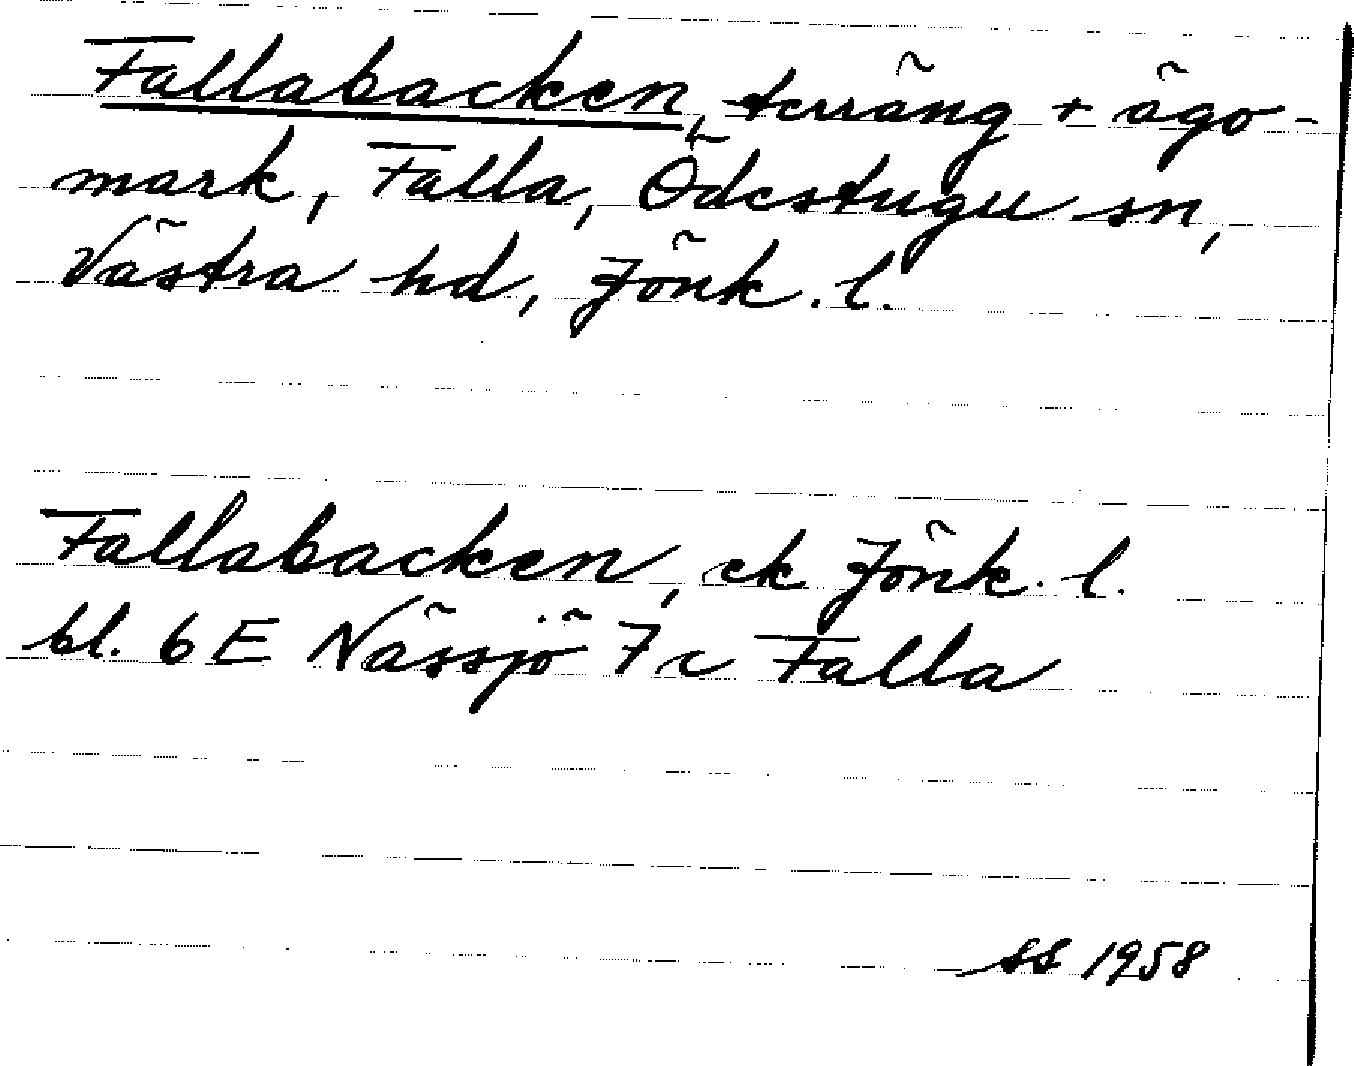 Fallabacken, terräng + ägo-
mark, Falla, Ödestugu sn,
Västra hd, Jönk. l.
Fallabacken, ek Jönk. l.
bl. 6 E Nässjö 7 c Falla
SS 1958